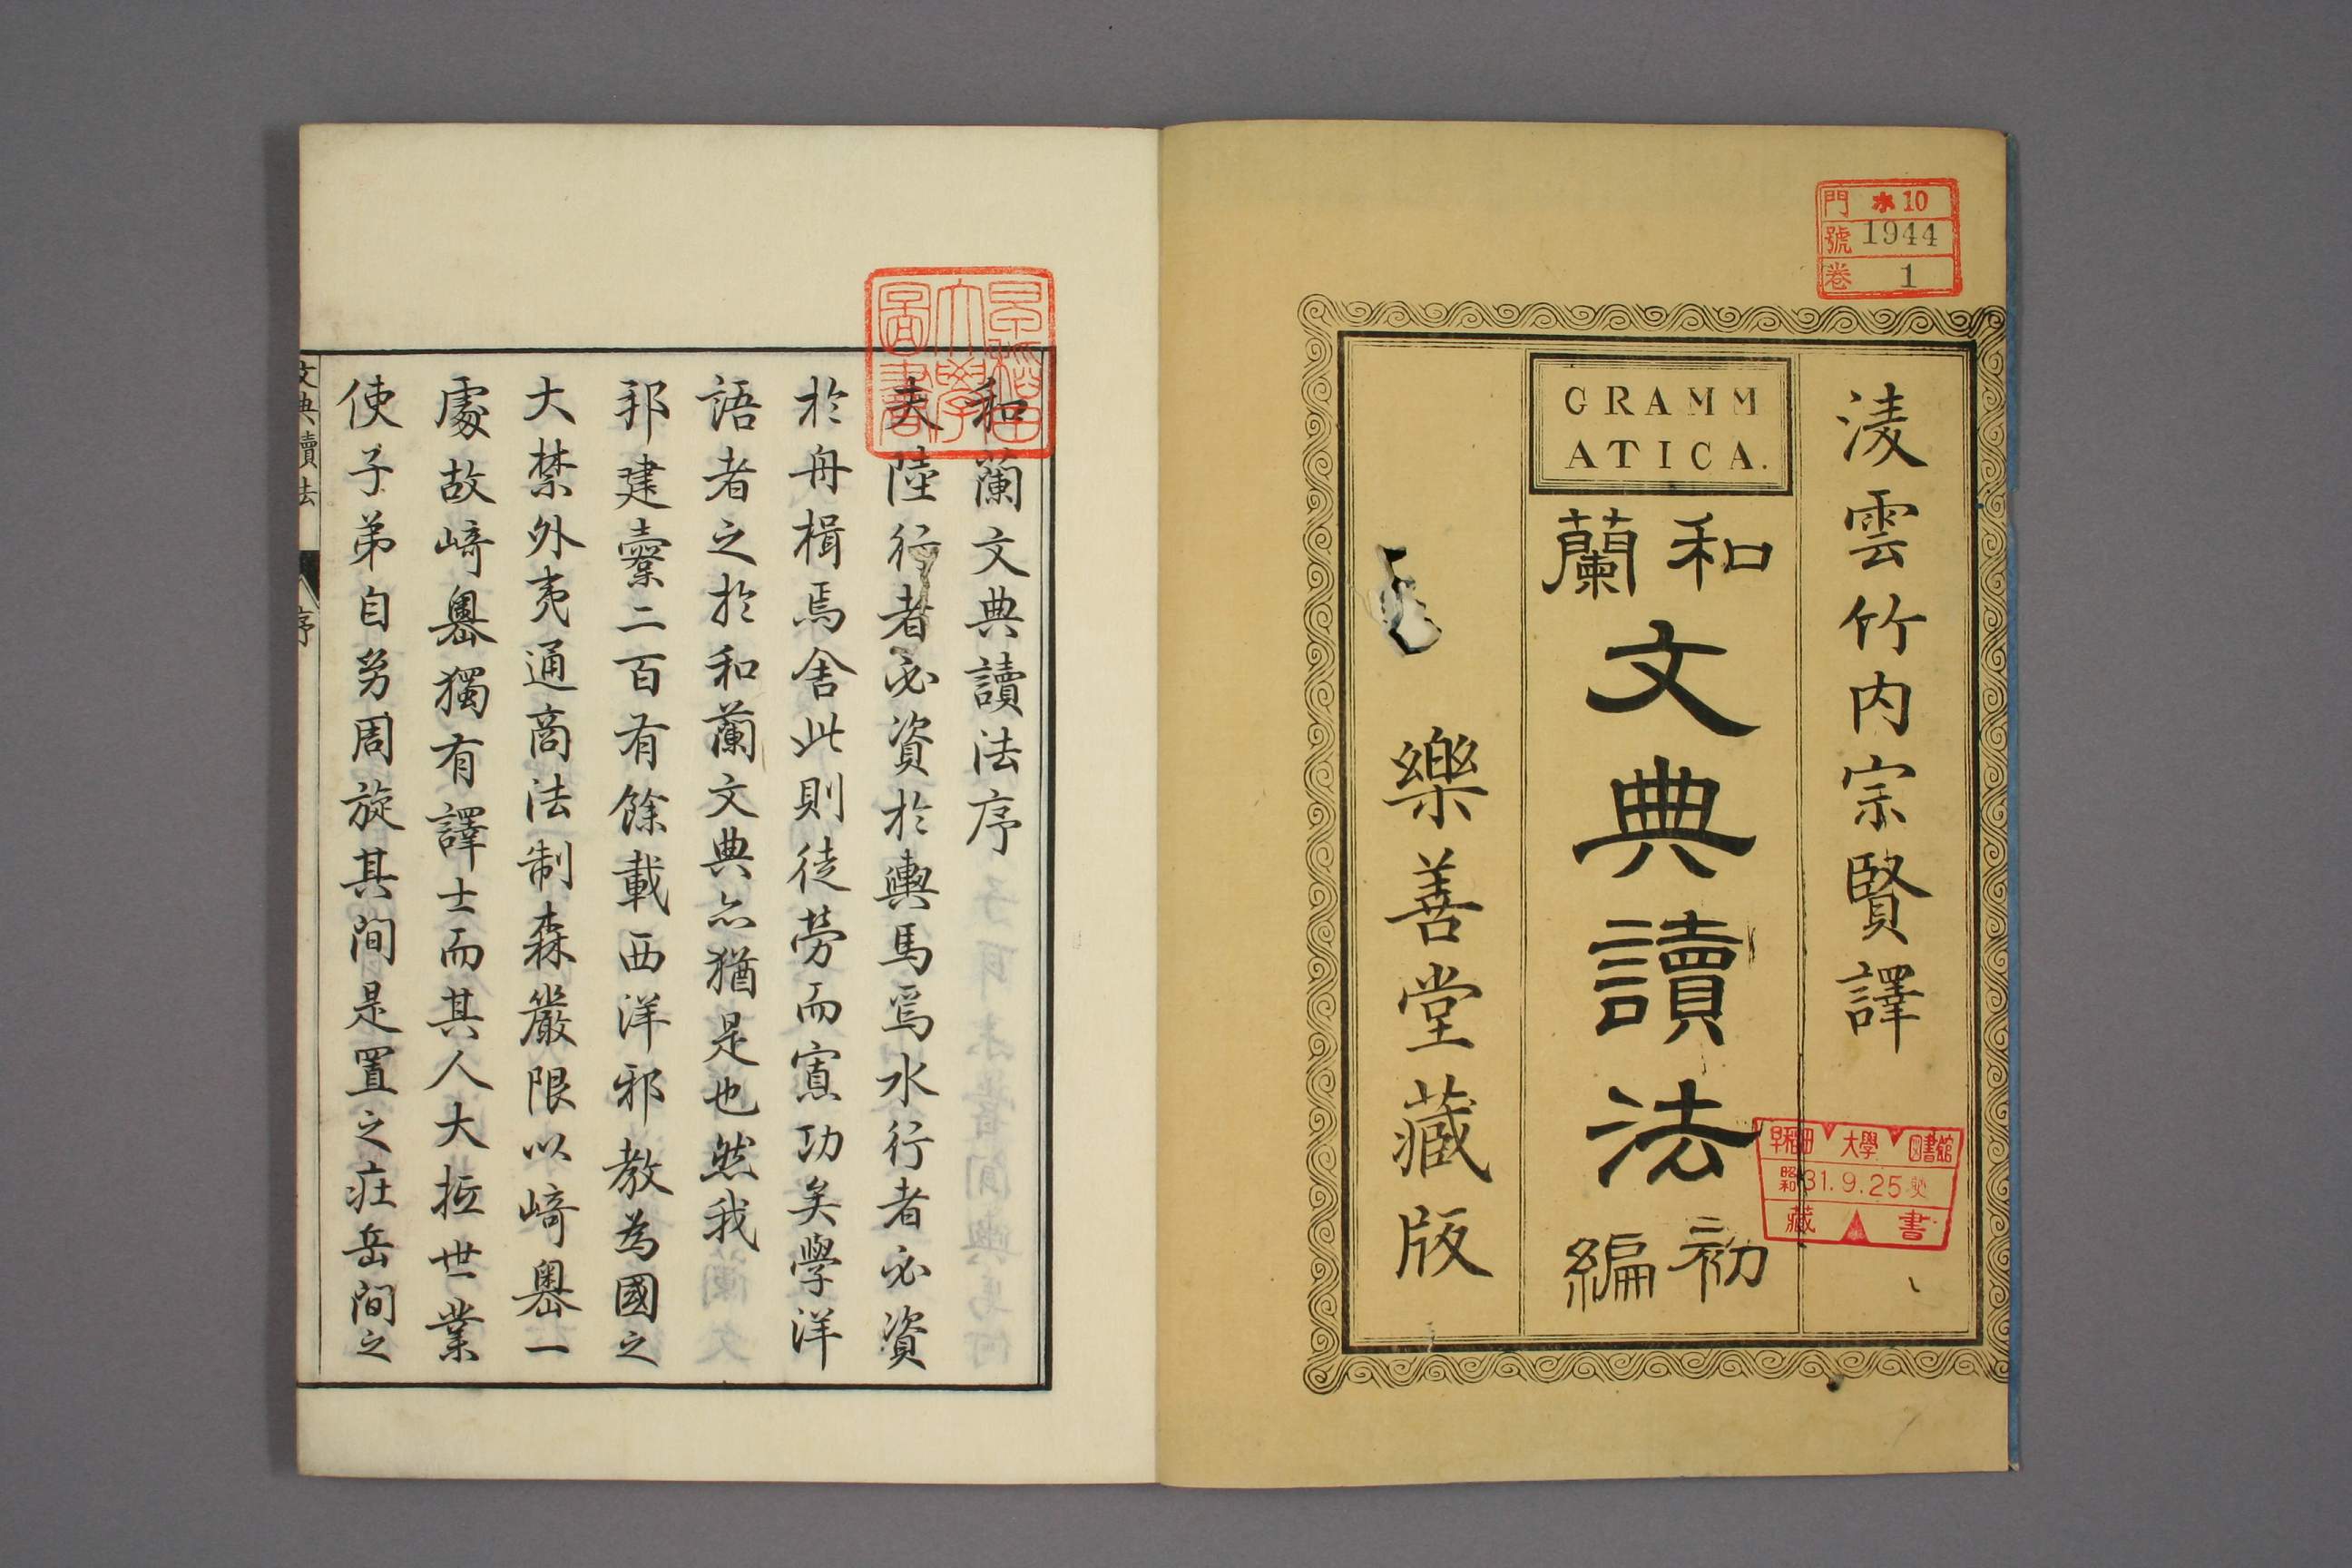 門 ホ10
號 1944
卷 1
淩雲竹内宗賢譯
GRAMM
ATICA.
和蘭
文典讀法
初編
樂善堂藏版
早稲田大學図書館
昭和31.9.25
藏書
早稲田大學圖書
和蘭文典讀法序
夫陸行者必資於輿馬焉水行者必資
於舟楫焉舍此則徒勞而寡功矣學洋
語者之於和蘭文典亦猶是也然我
邦建櫜二百有餘載西洋邪教為國之
大禁外夷通商法制森嚴限以崎嶴一
處故崎嶴獨有譯士而其人大抵世業
使子弟自幼周旋其間是置之莊岳間之
文典讀法 序